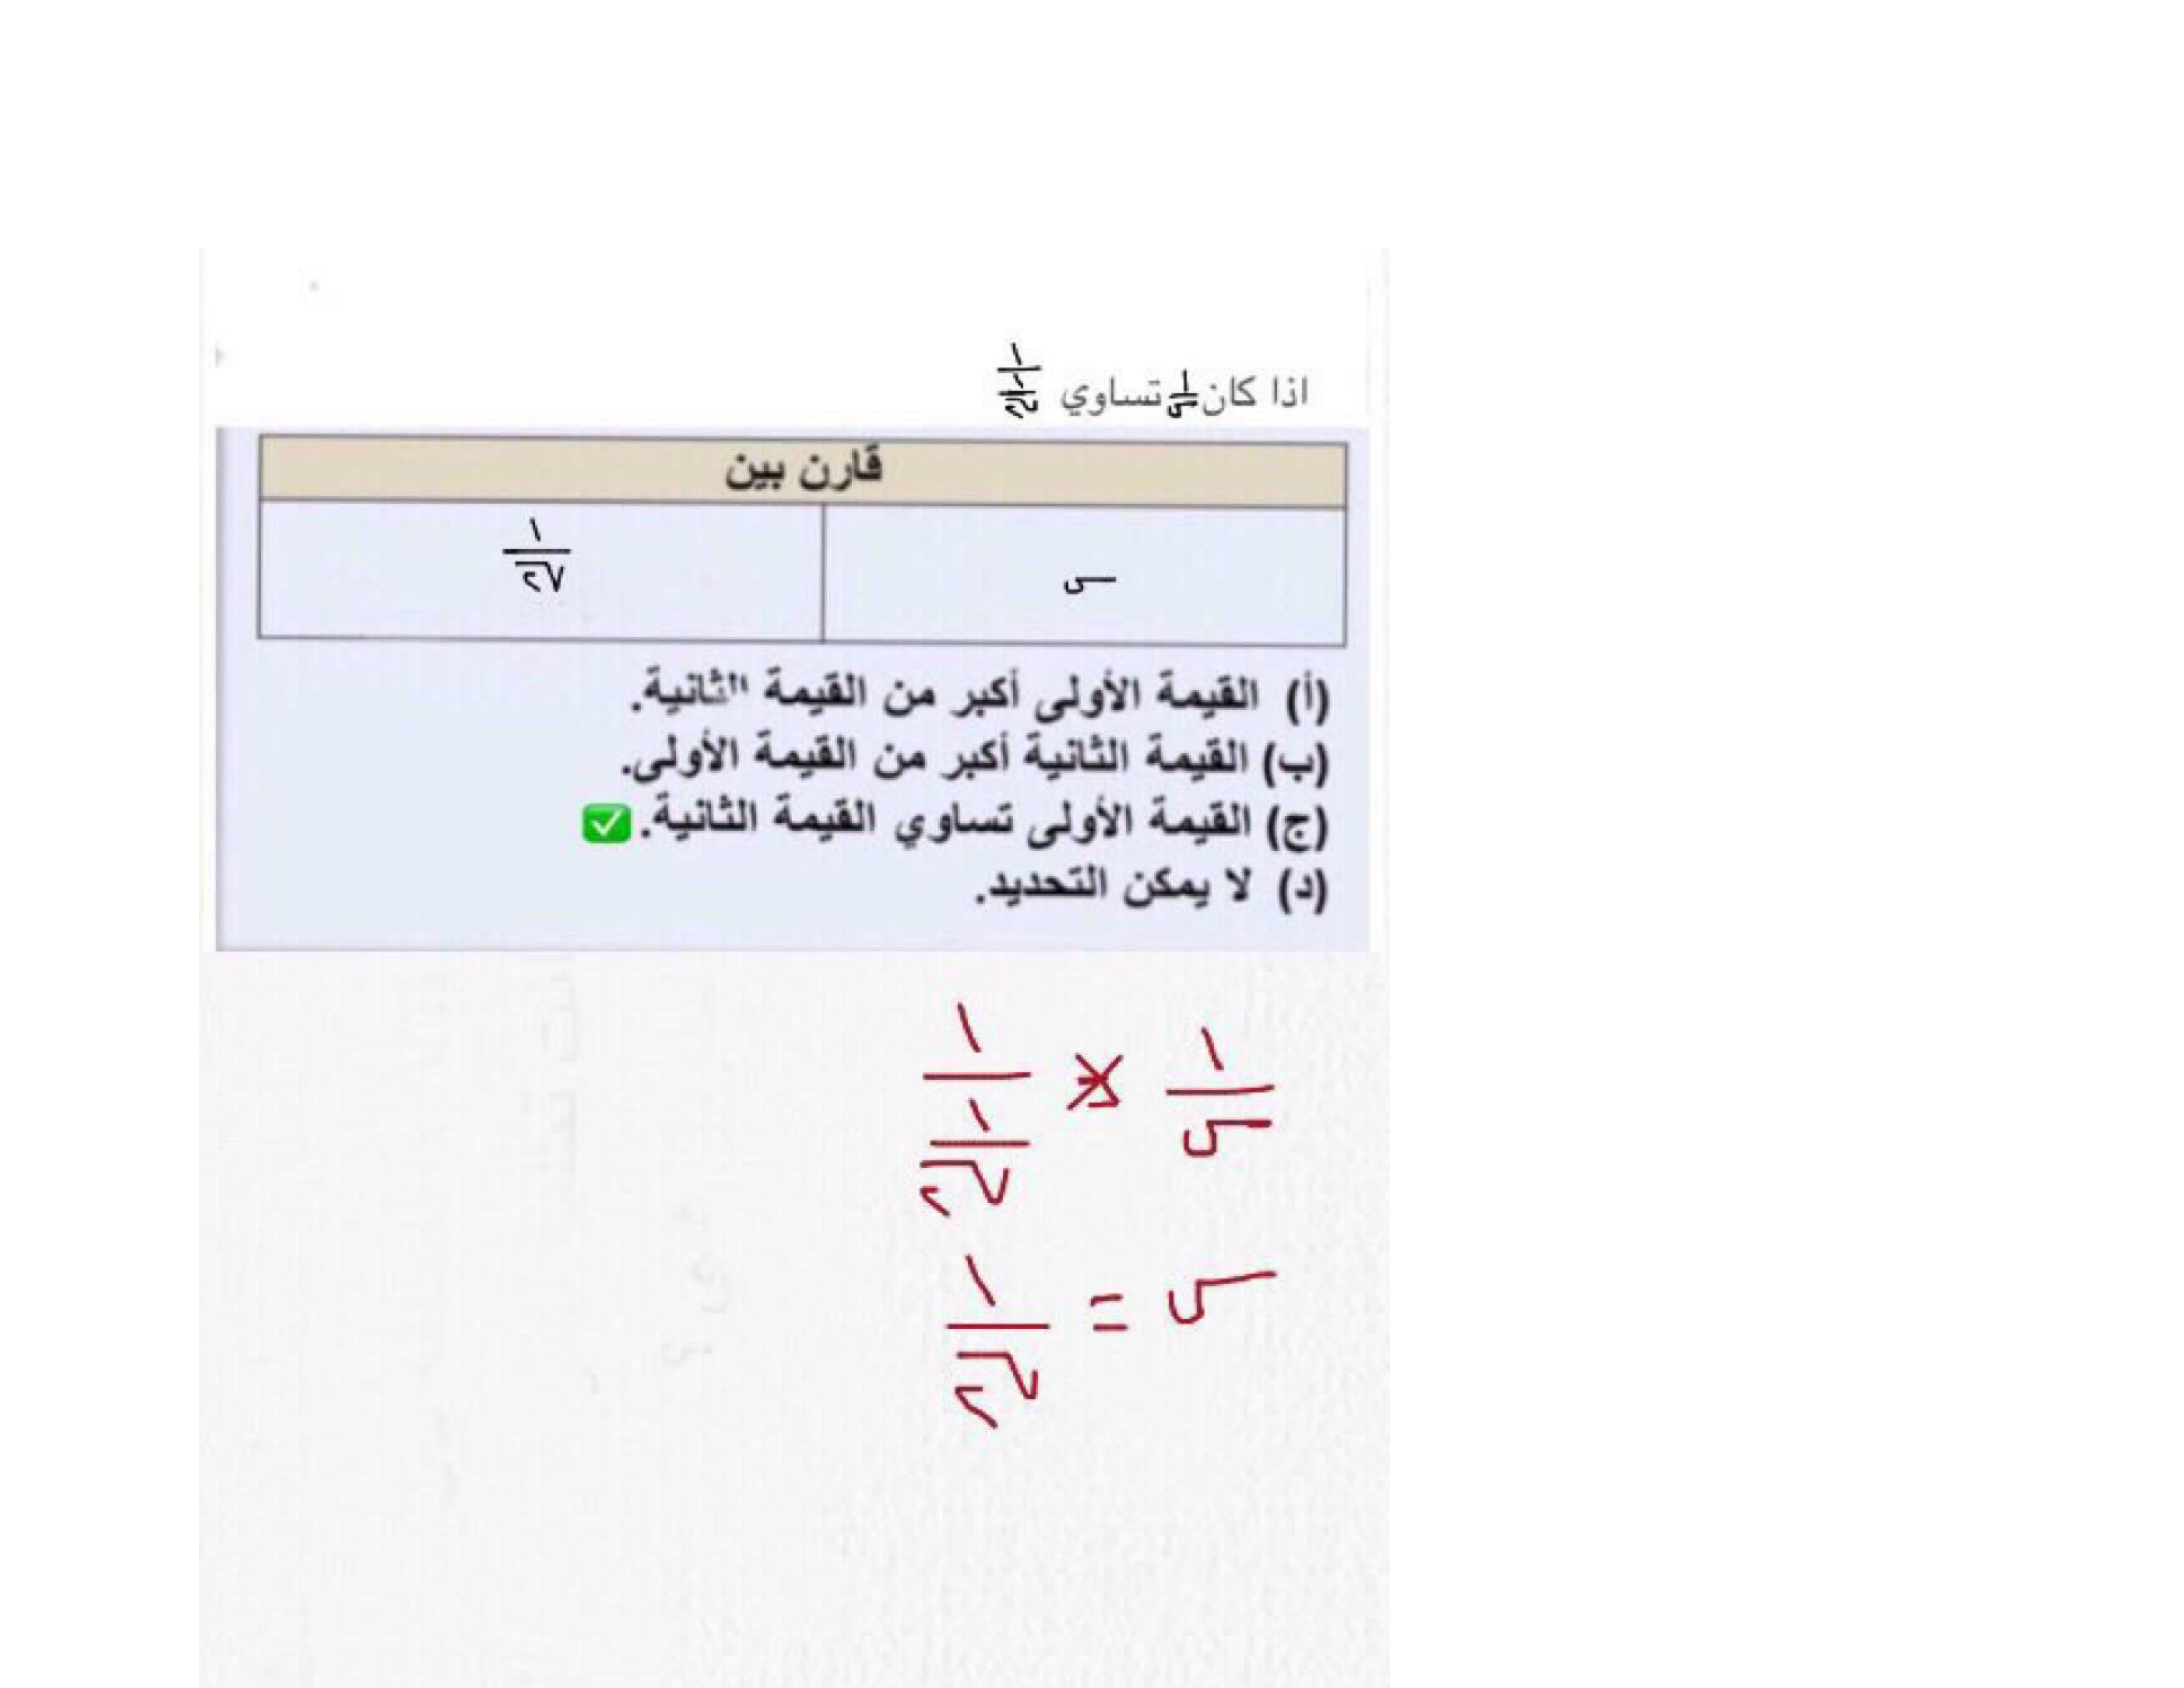 اذا كان ١/س تساوي ١/(١/√٢)
قارن بين
س
١/√٢
(أ) القيمة الأولى أكبر من القيمة الثانية.
(ب) القيمة الثانية أكبر من القيمة الأولى.
(ج) القيمة الأولى تساوي القيمة الثانية. ✅
(د) لا يمكن التحديد.
١/س × ١/(١/√٢)
س = ١/√٢